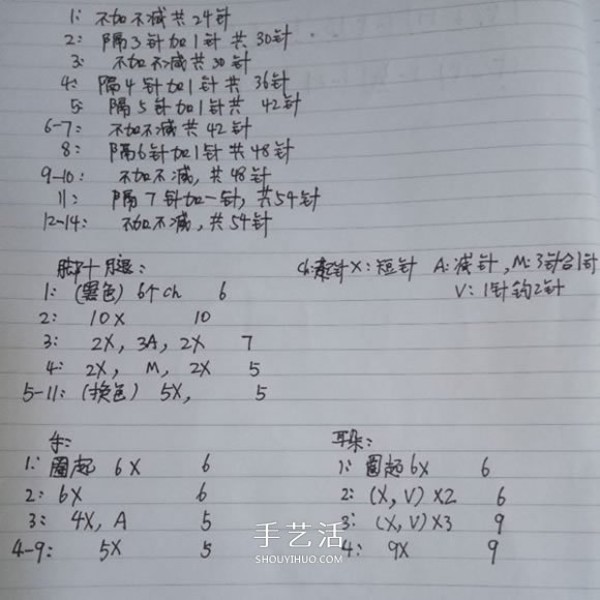 1: 不加不减共24针
2: 隔3针加1针共30针
3: 不加不减共30针
4: 隔4针加1针共36针
5: 隔5针加1针共42针
6-7: 不加不减共42针
8: 隔6针加1针共48针
9-10: 不加不减,共48针
11: 隔7针加一针,共54针
12-14: 不加不减,共54针
脚+腿:
ch:辫针 X:短针 A:减针,M:3针合1针
V:1针钩2针
1: (黑色) 6个ch 6
2: 10X 10
3: 2X, 3A, 2X 7
4: 2X, M, 2X 5
5-11: (换色) 5X, 5
手:
1: 圈起 6X 6
2: 6X 6
3: 4X, A 5
4-9: 5X 5
耳朵:
1: 圈起6X 6
2: (X, V) X2 6
3: (X, V) X3 9
4: 9X 9
手艺活
SHOUYIHUO.COM